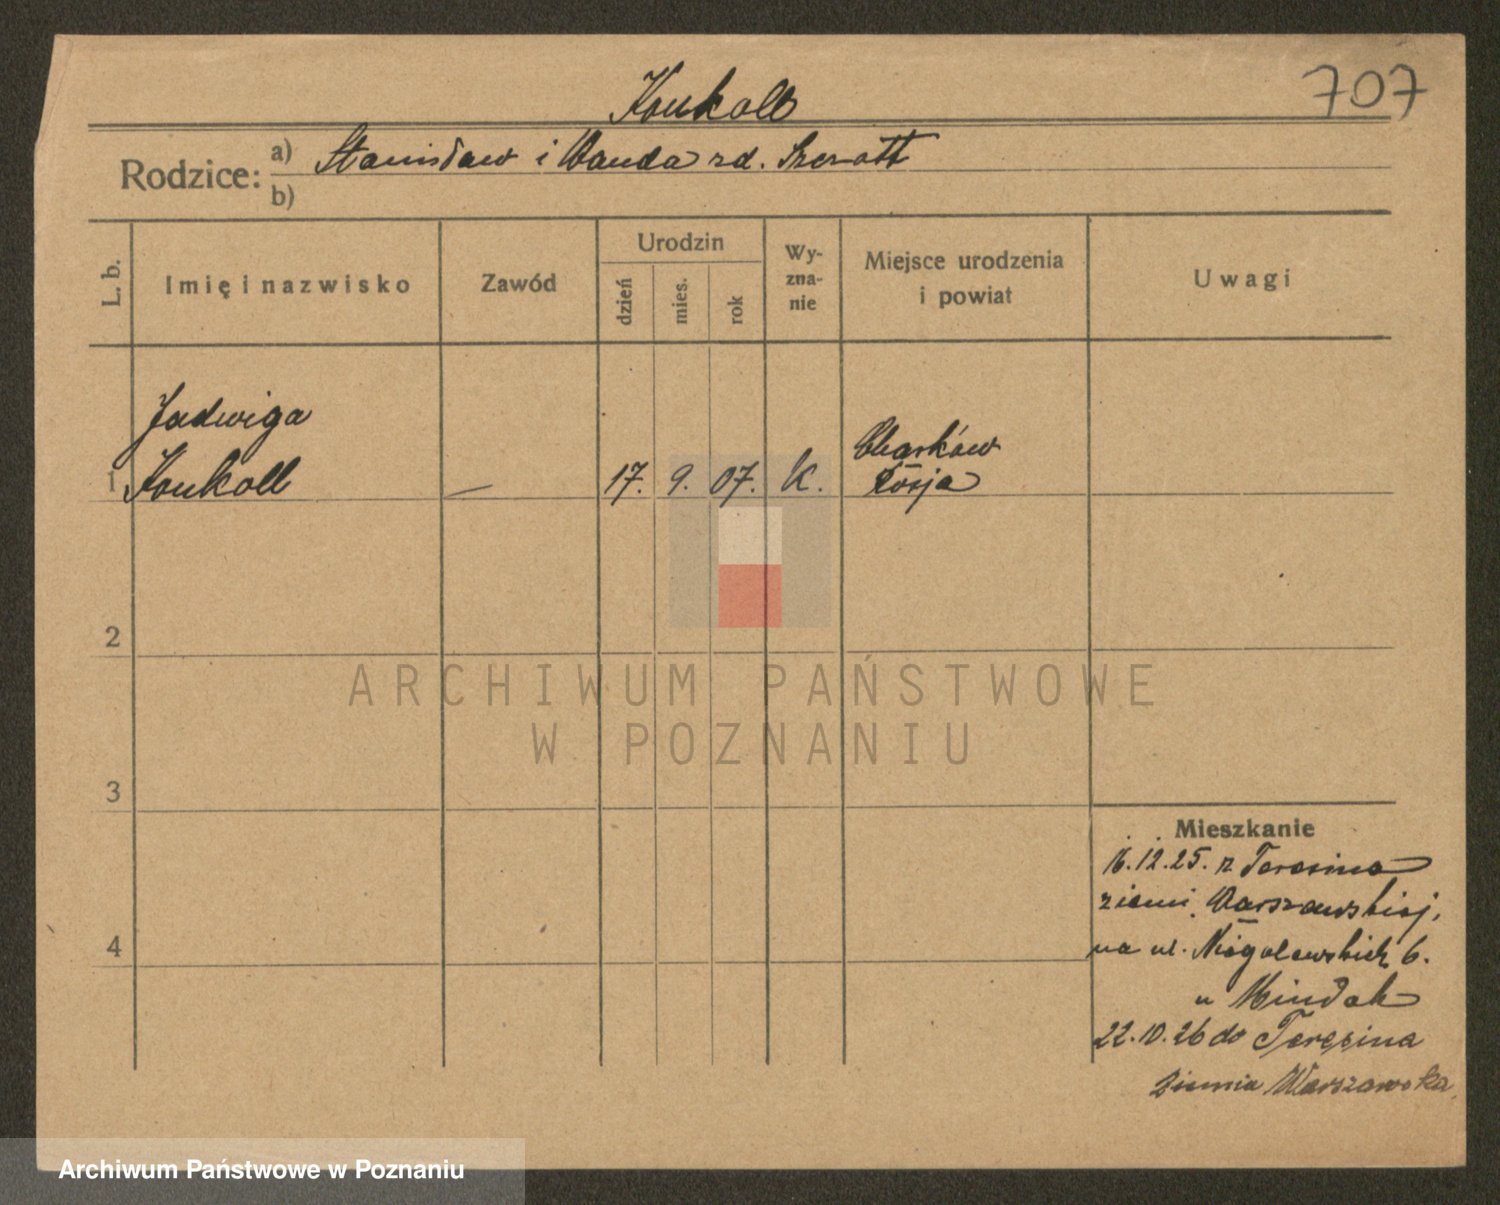 Koukoll
707
Rodzice: a) Stanisław i Wanda zd. Szerott
b)
L. b.
Imię i nazwisko
Zawód
Urodzin
dzień
mies.
rok
Wy-
zna-
nie
Miejsce urodzenia
i powiat
Uwagi
Jadwiga
1 Koukoll — 17. 9. 07. K.
Charków
Rosja
2
ARCHIWUM PAŃSTWOWE
W POZNANIU
3
Mieszkanie
16.12.25. z Teresina
ziemi Warszawskiej,
na ul. Niegolewskich 6.
4
u
22.10.26 do Teresina
Ziemia Warszawska
Archiwum Państwowe w Poznaniu